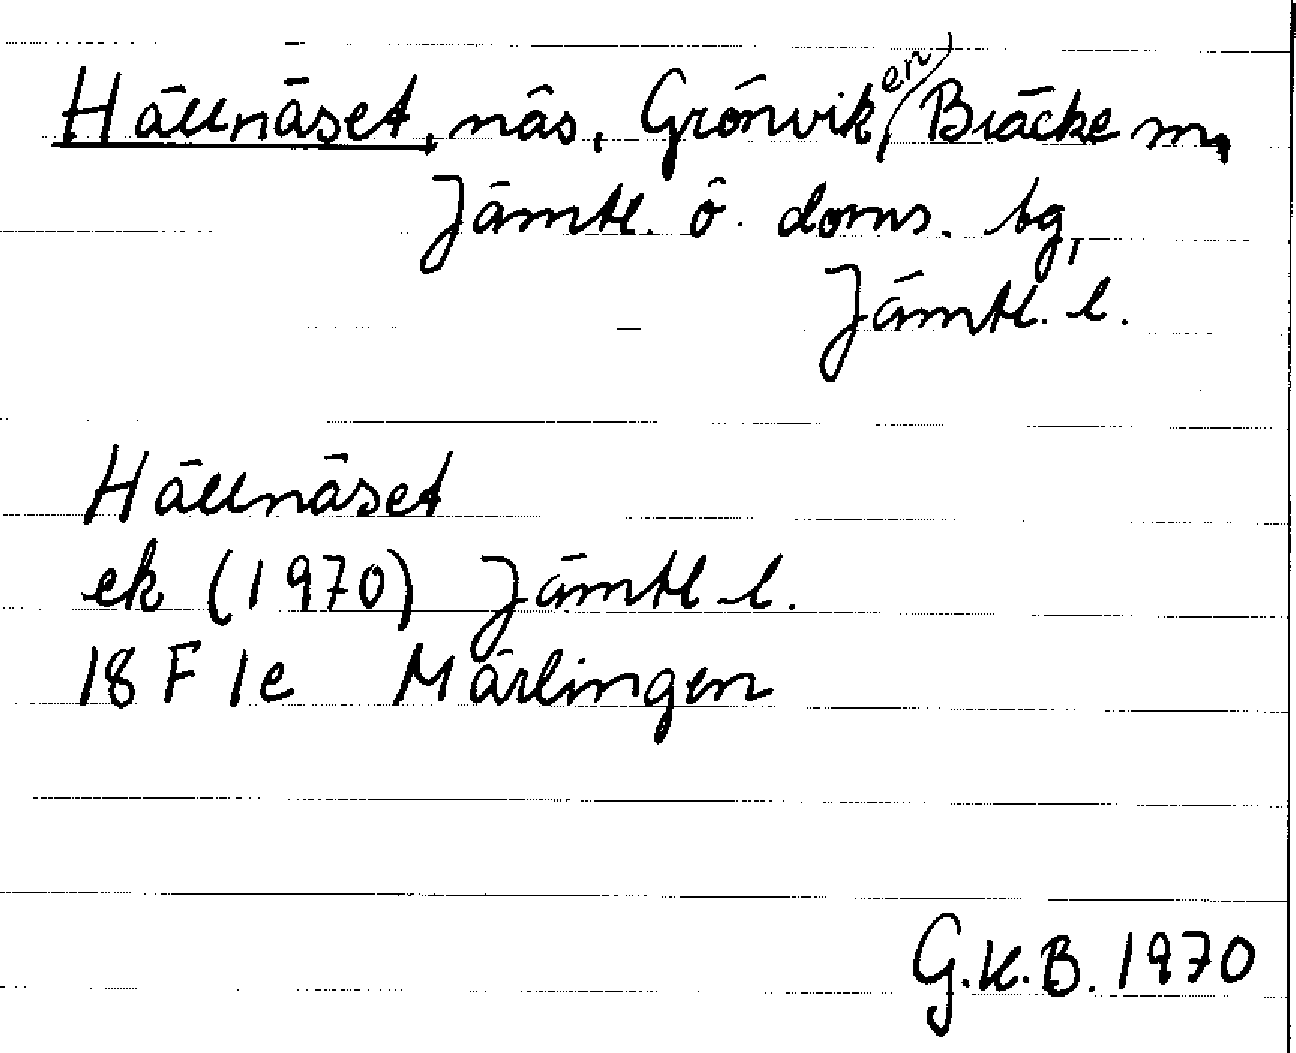 Hällnäset, näs, Grönviken, Bräcke m,
Jämtl. ö. doms. bg,
Jämtl. l.
Hällnäset
ek (1970) Jämtl l.
18 F 1e Märlingen
G.K.B. 1970